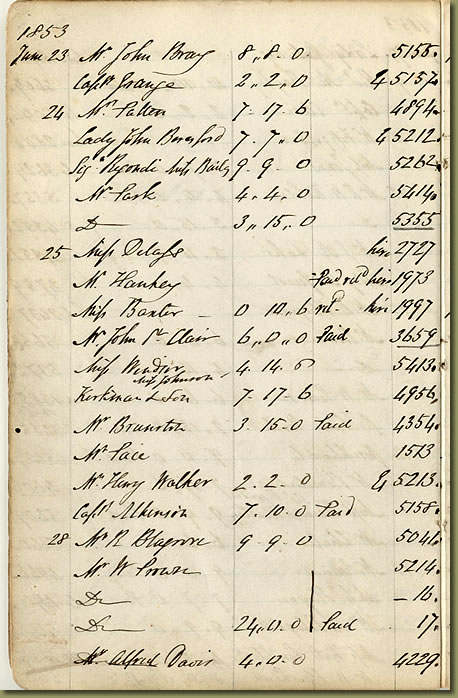 1853
June 23 Mr. John Bray 8 ,, 8 ,, 0 5156.
Capt. Grange 2 ,, 2 ,, 0 & 5157.
24 Mr. Patten 7 - 17 - 6 4894.
Lady John Beresford 7 ,, 7 ,, 0 & 5212.
Sigr. Regondi Miss Baily 9 - 9 - 0 5262.
Mr. Park 4 ,, 4 ,, 0 5414.
Do 3 ,, 15 ,, 0 5355
25 Miss hire 2727
Mr. Hankey Paid retd. hire 1973
Miss Baxter - 0 10 ,, 6 retd. hire 1997
Mr. John St. Clair 6 ,, 0 ,, 0 Paid 3659
Miss Windsor 4 - 14 - 6 5413.
Miss Johnson
Kirkman & Son 7 - 17 - 6 4956.
Mr. Branston 3 - 15 - 0 Paid 4354.
Mr. Pace 1513
Mr. Henry Walker 2 - 2 - 0 & 5213.
Capt. Atkinson 7 - 10 - 0 Paid 5158.
28 Mr. R Blagrove 9 - 9 - 0 5041.
Mr. W Prowse 5214.
Do - 16.
Do 24 ,, 0 - 0 Paid 17.
Mr. Alfred Davis 4 ,, 0 - 0 4229.